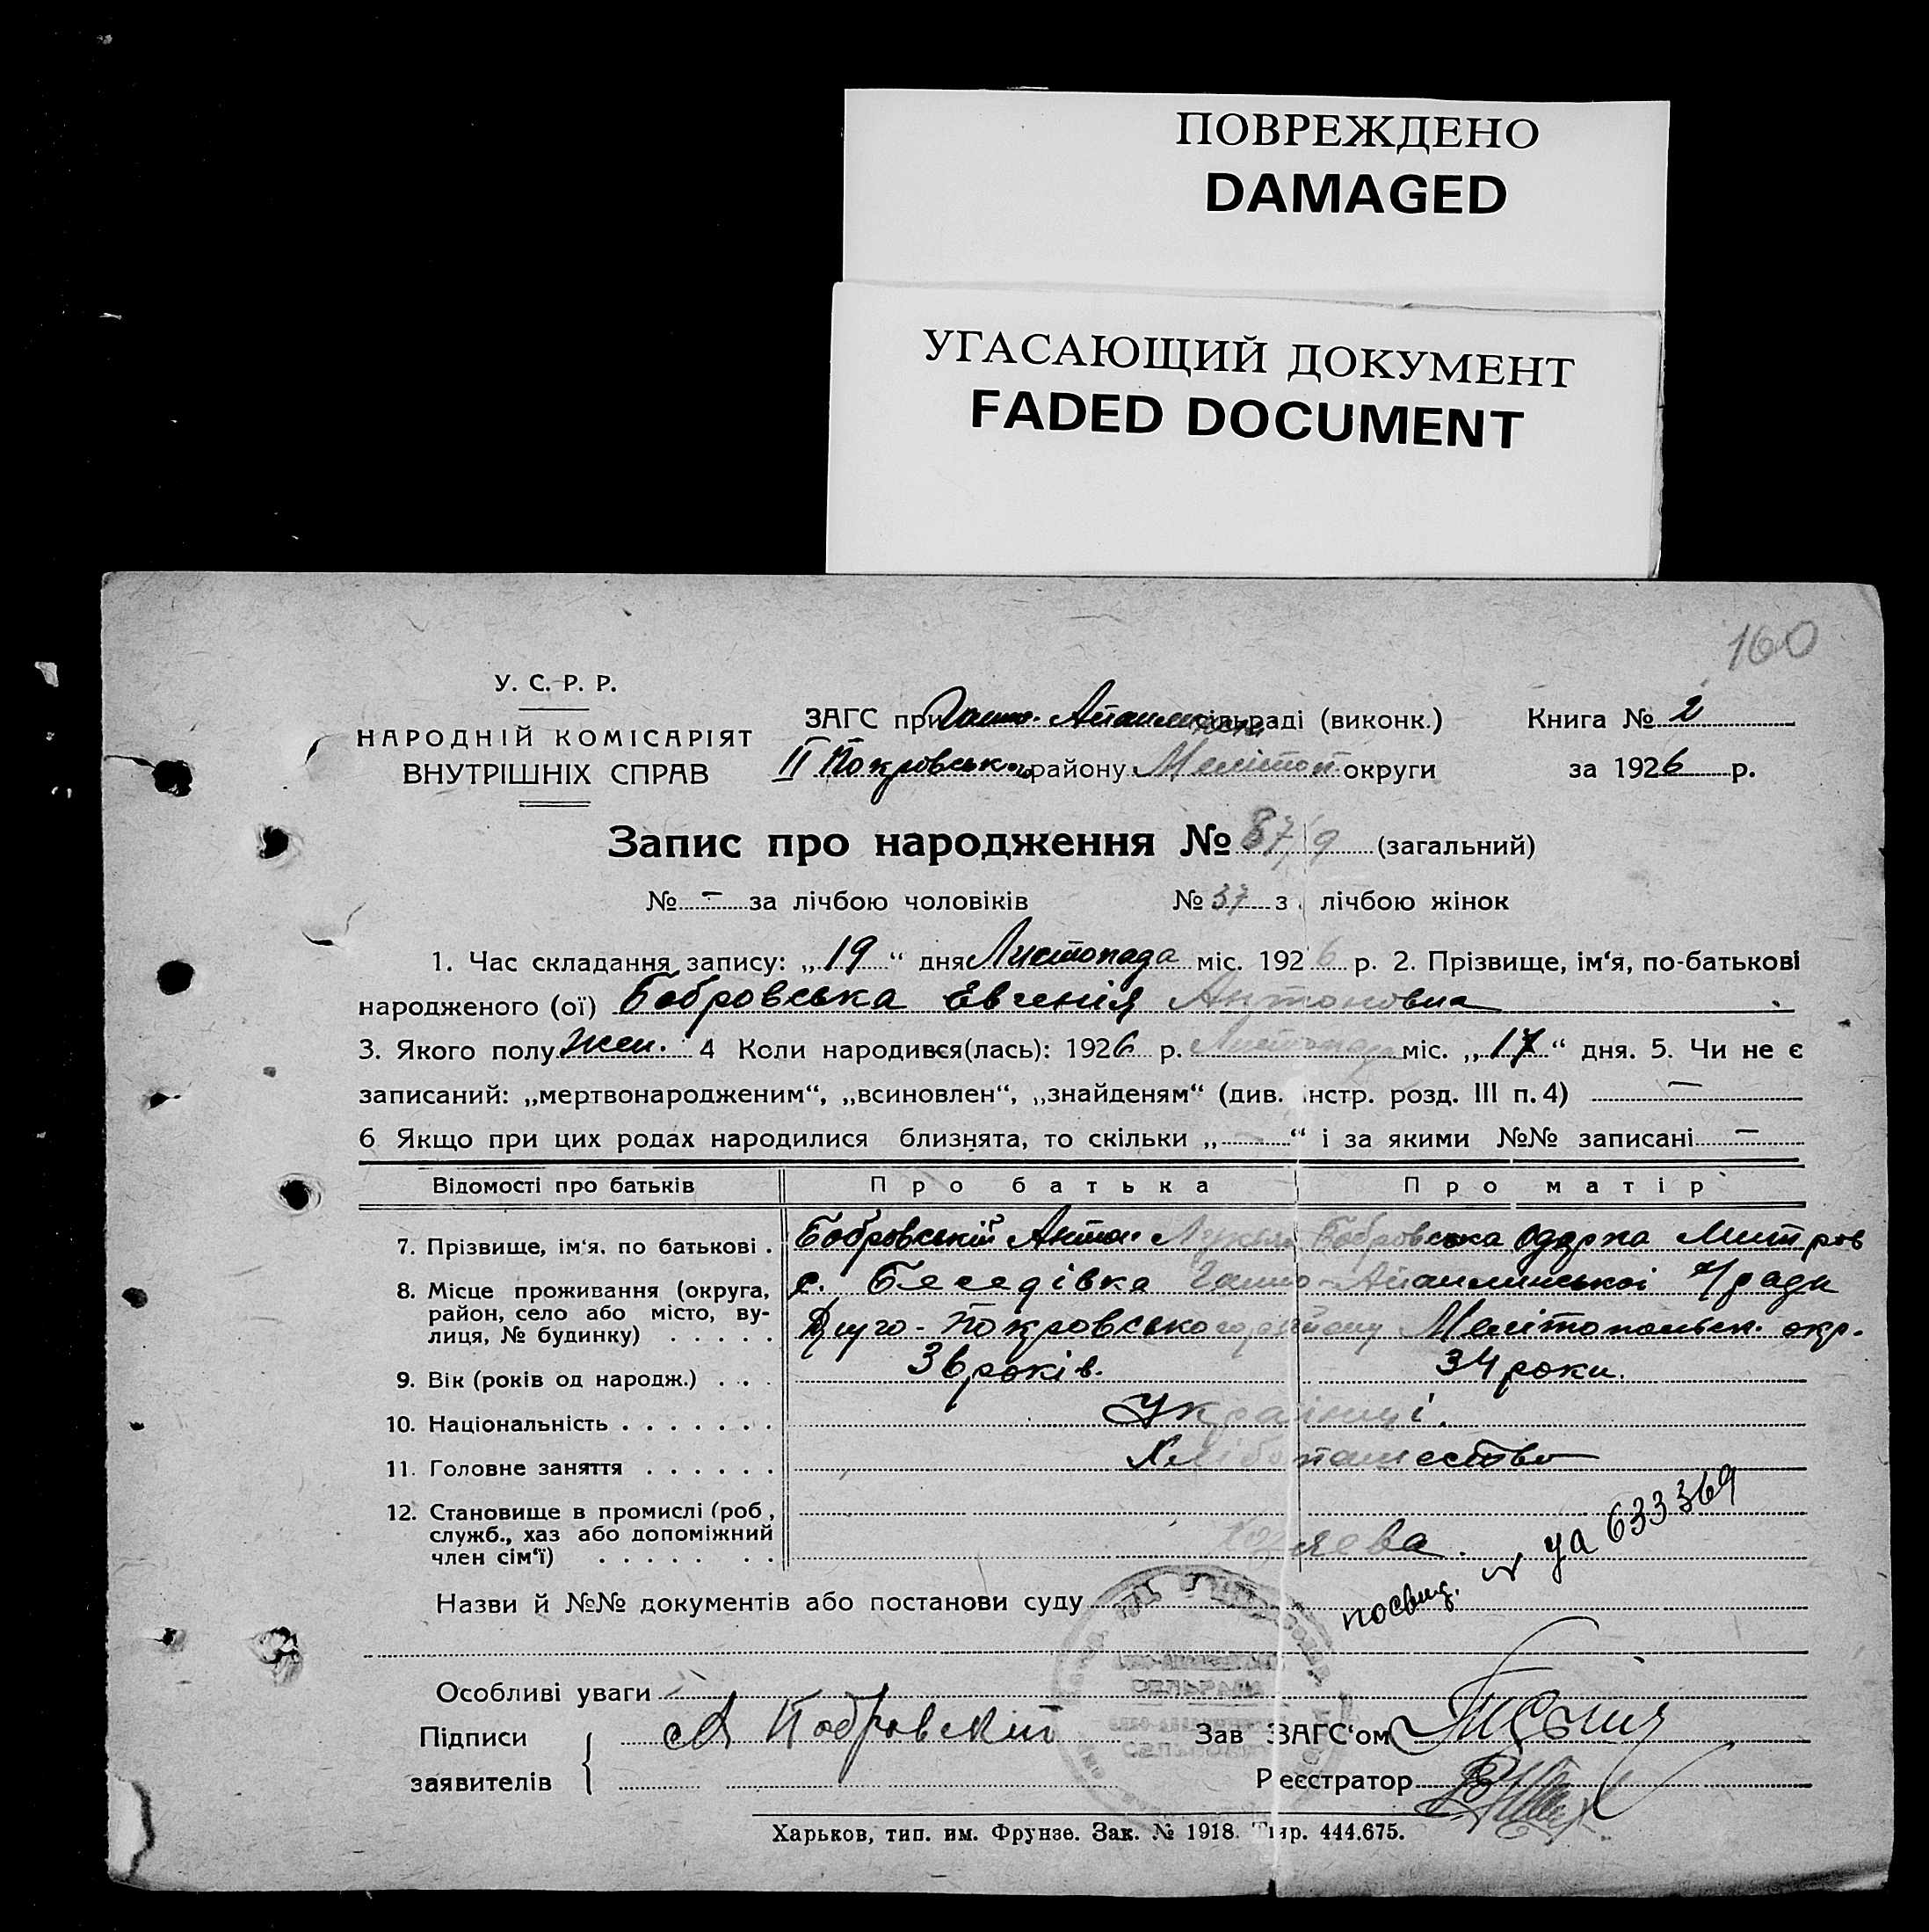 ПОВРЕЖДЕНО
DAMAGED
УГАСАЮЩИЙ ДОКУМЕНТ
FADED DOCUMENT
160
У. С. Р. Р.
НАРОДНІЙ КОМІСАРІЯТ
ВНУТРІШНІХ СПРАВ
ЗАГС при сільраді (виконк.) Книга № 2
ІІ Покровськ району Меліт округи за 1926 р.
Запис про народження № (загальний)
№ - за лічбою чоловіків № 37 з лічбою жінок
1. Час складання запису: „19“ дня Листопада міс. 1926 р. 2. Прізвище, ім‘я, по-батькові
народженого (ої) Бобровська Евгенія Антоновна
3. Якого полу жен. 4 Коли народився(лась): 1926 р. Листопада міс. „17“ дня. 5. Чи не є
записаний: „мертвонародженим“, „всиновлен“, „знайденям“ (див. інстр. розд. III п. 4) —
6 Якщо при цих родах народилися близнята, то скільки „ “ і за якими №№ записані —
Відомості про батьків Про батька Про матір
7. Прізвище, ім‘я, по батькові . Бобровський Антон Бобровська Одарка Митров
8. Місце проживання (округа, с. Беседівка ради
район, село або місто, ву- Друго-Покровського району Мелітопольськ. окр.
лиця, № будинку) . . . . .
9. Вік (років од народж.) . . . 36 років. 34 роки.
10. Національність . . . . . . . Українці.
11. Головне заняття . . . . . . Хлібопашество
12. Становище в промислі (роб,
служб., хаз або допоміжний
член сім‘ї) . . . . . . .
посвид. № УА 633369
Назви й №№ документів або постанови суду
Особливі уваги
Підписи А Бобровский Зав ЗАГС‘ом
заявителів Реєстратор
Харьков, тип. им. Фрунзе. Зак. № 1918. Тир. 444.675.